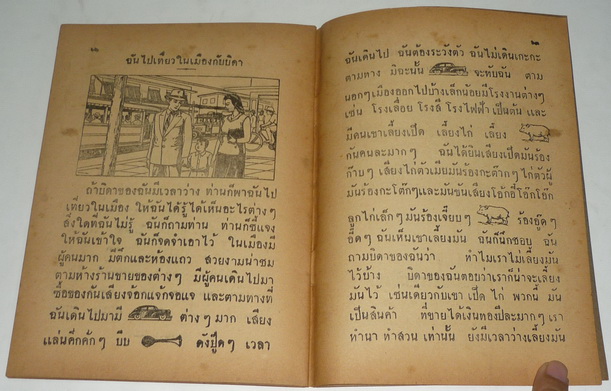 ๒๒
ฉันไปเที่ยวในเมืองกับบิดา
ถ้าบิดาของฉันมีเวลาว่าง ท่านก็พาฉันไป
เที่ยวในเมือง ให้ฉันได้รู้ได้เห็นอะไรต่างๆ
สิ่งใดที่ฉันไม่รู้ ฉันก็ถามท่าน ท่านก็ชี้แจง
ให้ฉันเข้าใจ ฉันก็จดจำเอาไว้ ในเมืองมี
ผู้คนมาก มีตึกและห้องแถว สวยงามน่าชม
ตามห้างร้านขายของต่างๆ มีผู้คนเดินไปมา
ซื้อของกันเสียงจ้อกแจ้กจอแจ และตามทางที่
ฉันเดินไปมามี ต่างๆ มาก เสียง
แล่นคึกคักๆ บีบ ดังปู๊ดๆ เวลา
๒๓
ฉันเดินไป ฉันต้องระวังตัว ฉันไม่เดินเกะกะ
ตามทาง มิฉะนั้น จะทับฉัน ตาม
นอกๆเมืองออกไปบ้างเล็กน้อยมีโรงงานต่างๆ
เช่น โรงเลื่อย โรงสี โรงไฟฟ้า เป็นต้น และ
มีคนเขาเลี้ยงเป็ด เลี้ยงไก่ เลี้ยง
กันคนละมากๆ ฉันได้ยินเสียงเป็ดมันร้อง
ก๊าบๆ เสียงไก่ตัวเมียมันร้องกะต๊ากๆ ไก่ตัวผู้
มันร้องกะโต๊กๆและมันขันเสียงโอ้กอี๋โอ๊กโอ้ก
ลูกไก่เล็กๆ มันร้องเจี๊ยบๆ ร้องอู๊ดๆ
อี๊ดๆ ฉันเห็นเขาเลี้ยงมัน ฉันก็นึกชอบ ฉัน
ถามบิดาของฉันว่า ทำไมเราไม่เลี้ยงมัน
ไว้บ้าง บิดาของฉันตอบว่าเราก็น่าจะเลี้ยง
มันไว้ เช่นเดียวกับเขา เป็ด ไก่ พวกนี้ มัน
เป็นสินค้า ที่ขายได้เงินทองปีละมากๆ เรา
ทำนา ทำสวน เท่านั้น ยังมีเวลาว่างเลี้ยงมัน